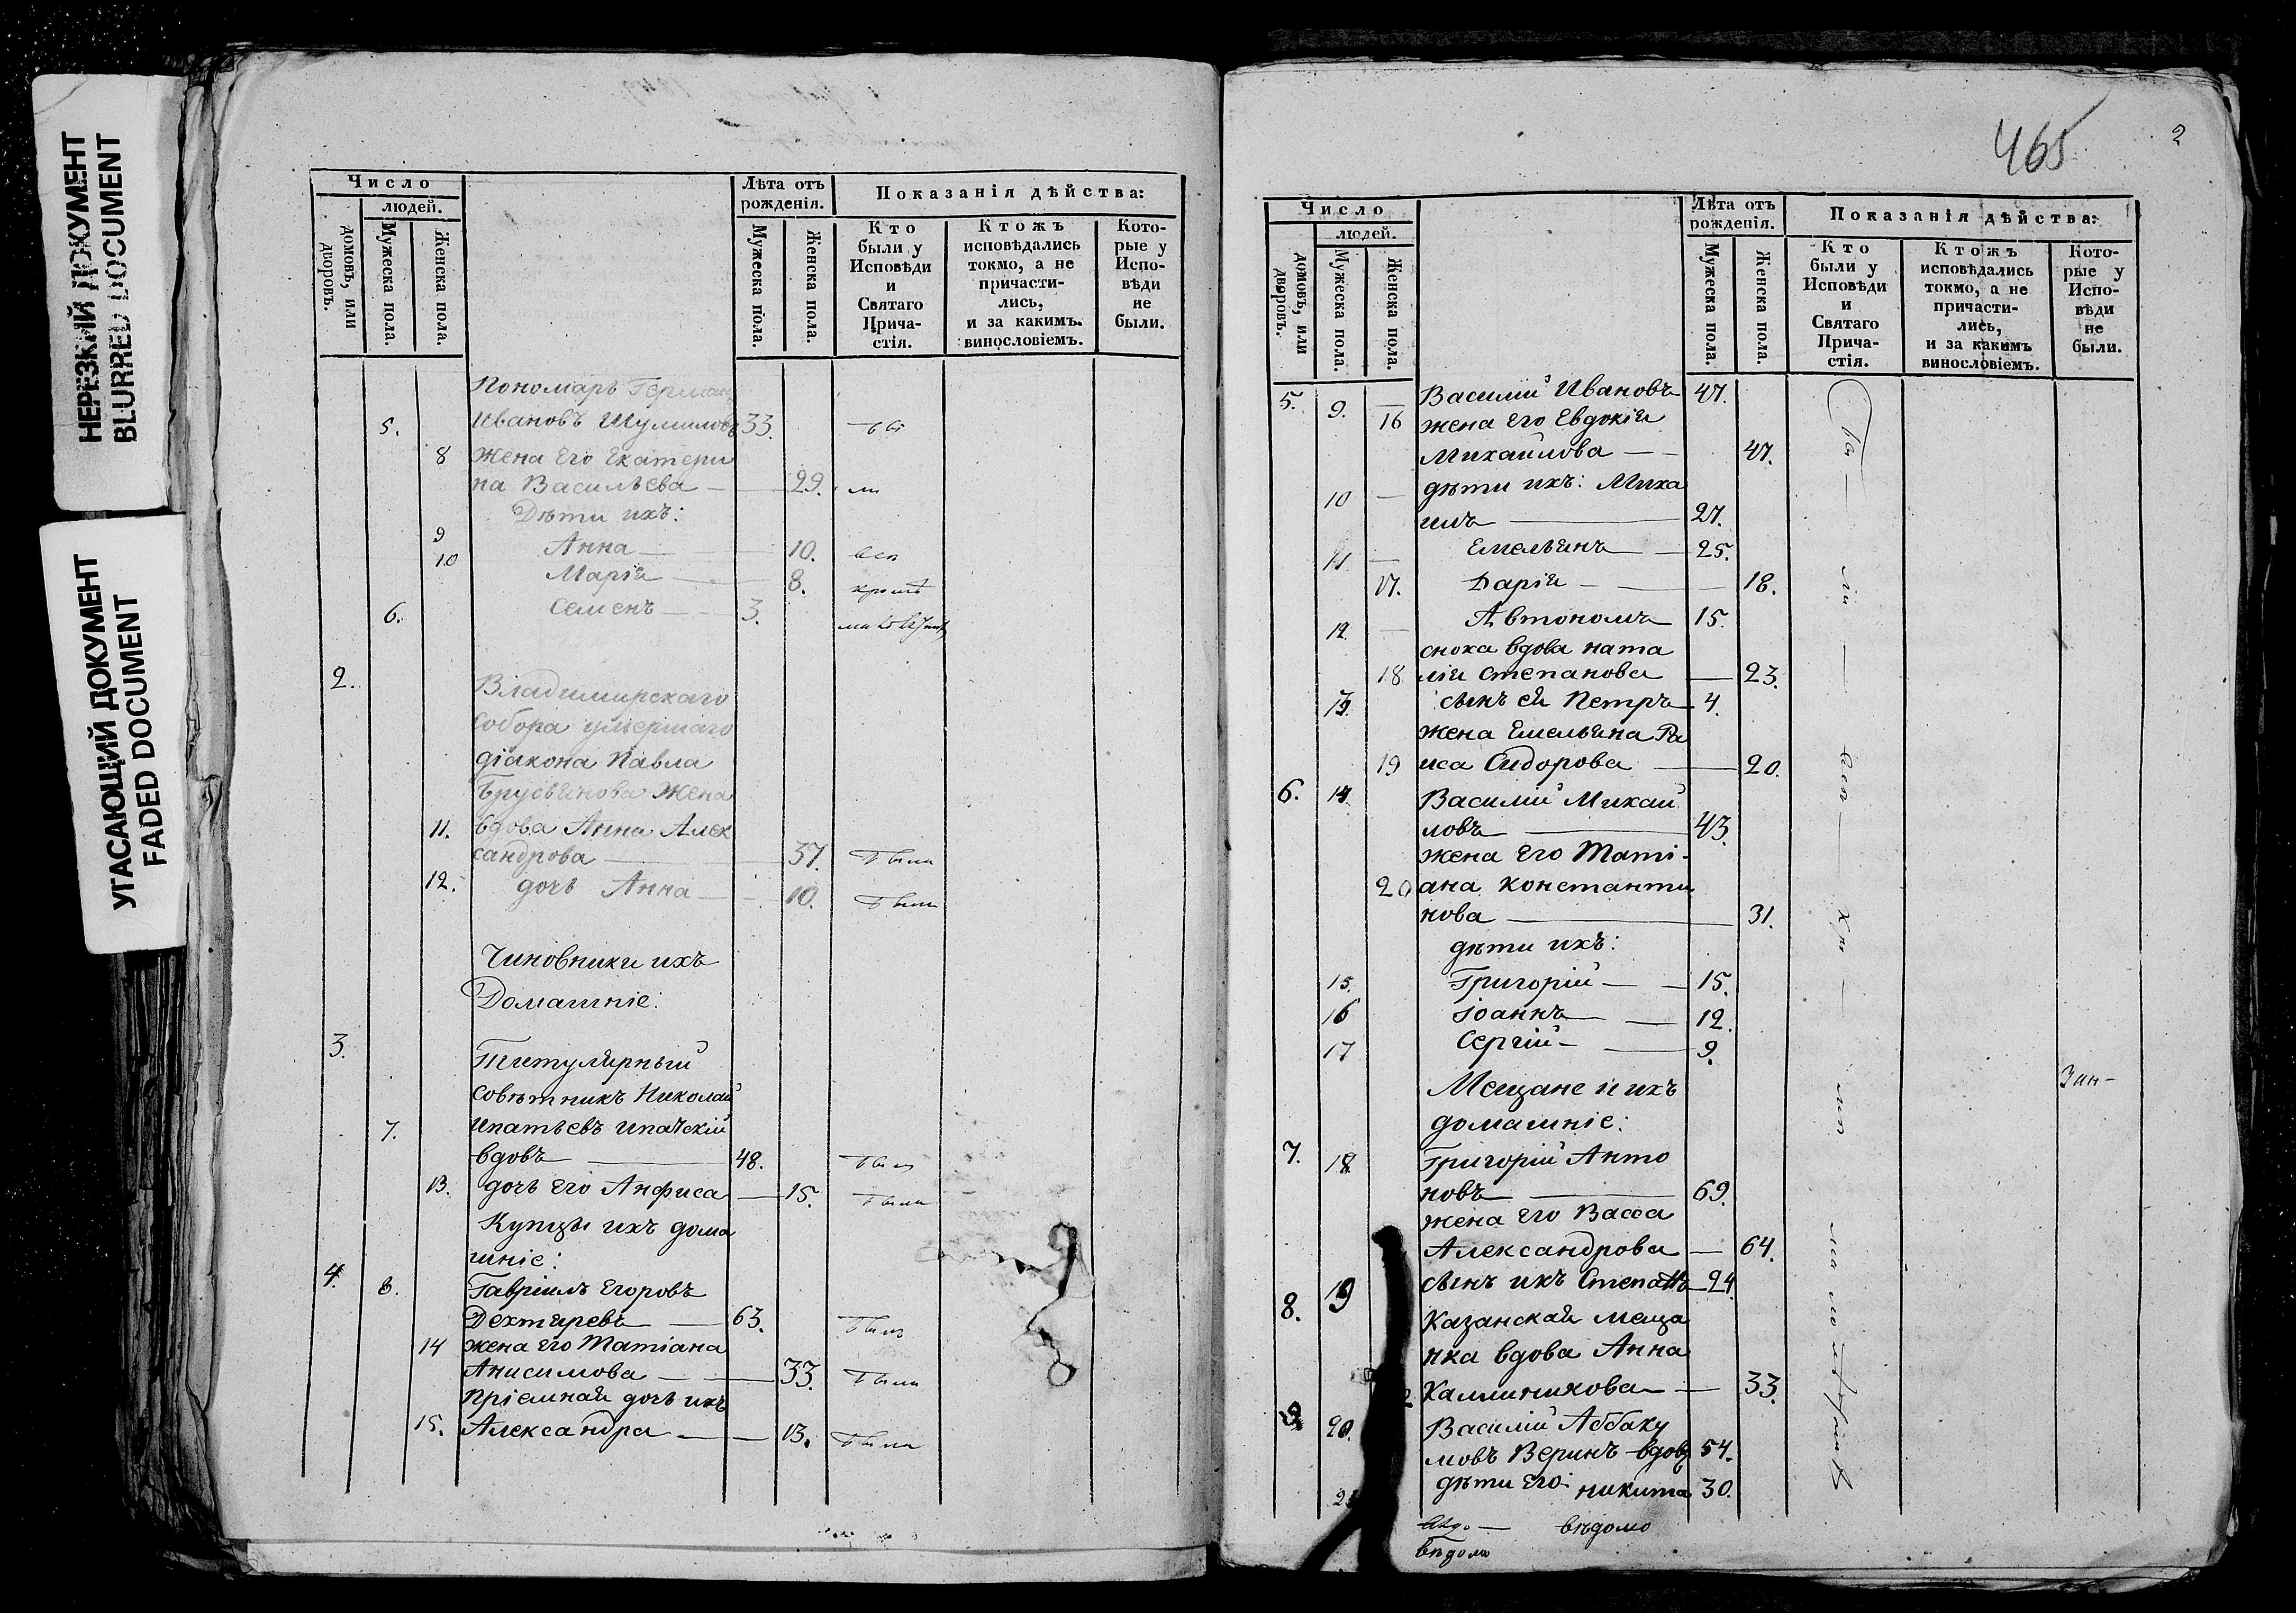 НЕРЕЗКИЙ ДОКУМЕНТ
BLURRED DOCUMENT
УГАСАЮЩИЙ ДОКУМЕНТ
FADED DOCUMENT
Число
людей.
домовъ, или дворовъ.
Мужеска пола.
Женска пола.
Лѣта отъ рожденія.
Мужеска пола.
Женска пола.
Показанія дѣйства:
Кто были у Исповѣди и Святаго Прича- стія.
Ктожъ исповѣдались токмо, а не причасти- лись, и за какимъ винословіемъ.
Кото- рые у Испо- вѣди не были.
Пономарь Герман
5. Ивановъ Шумиловъ 33. бы
8 жена его Екатери
на Васильева — 29. ли
Дѣти ихъ:
9 Анна — 10. всѣ
10 Марія — 8. кромѣ
6. Семенъ — 3.
2. Владимирскаго
собора умершаго
діакона Павла
жена
11. вдова Анна Алек
сандрова — 37. была
12. дочь Анна — 10. была
Чиновники ихъ
Домашніе:
3. Титулярный
совѣтникъ Николай
7. Ипатьевъ
вдовъ — 48. былъ
13. дочь его Анфиса — 15. была
Купцы ихъ дома
шніе:
4. 8. Гавріилъ Егоровъ
Дехтяревъ — 63. былъ
14 жена его Татіана
Анисимова — 33. была
пріемная дочь ихъ
15. Александра — 13. была
465
2
Число
людей.
домовъ, или дворовъ.
Мужеска пола.
Женска пола.
Лѣта отъ рожденія.
Мужеска пола.
Женска пола.
Показанія дѣйства:
Кто были у Исповѣди и Святаго Прича- стія.
Ктожъ исповѣдались токмо, а не причасти- лись, и за какимъ винословіемъ.
Кото- рые у Испо- вѣди не были.
5. 9. Василій Ивановъ 47.
16 жена его Евдокія
Михайлова — 47.
10 дѣти ихъ: Миха
илъ — 27.
11. Емельянъ — 25.
17. Дарія — 18.
12. Автономъ 15.
сноха вдова ната
18 лія Степанова — 23.
13. сынъ ея Петръ 4.
жена Емельяна Ра
19 иса Сидорова — 20.
6. 14. Василій Михай
ловъ — 43.
жена его Таті-
20 ана Константи
нова — 31.
дѣти ихъ:
15. Григорій — 15.
16 Іоаннъ — 12.
17 Сергій — 9.
Мещане и ихъ
домашніе:
7. 18 Григорій Анто
новъ — 69.
жена его Васса
Александрова — 64.
19 сынъ ихъ Степанъ 24.
8. Казанская меща
нка вдова Анна
Каллиникова — 33.
9. 20. Василій Аббаку
мовъ Веринъ вдовъ 54.
дѣти его: никита 30.
вѣдомо